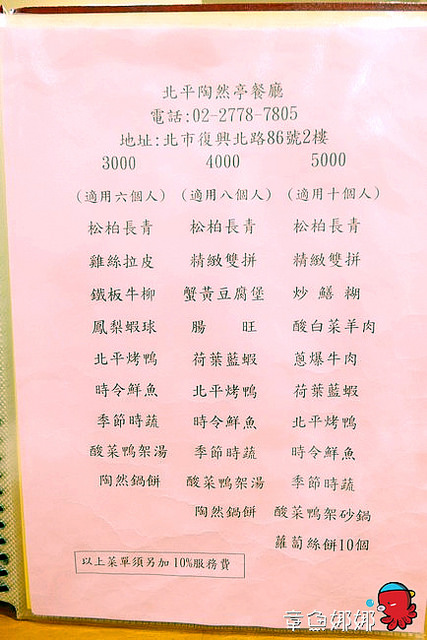 北平陶然亭餐廳
電話:02-2778-7805
地址:北市復興北路86號2樓
3000 4000 5000
(適用六個人) (適用八個人) (適用十個人)
松柏長青 松柏長青 松柏長青
雞絲拉皮 精緻雙拼 精緻雙拼
鐵板牛柳 蟹黃豆腐堡 炒鱔糊
鳳梨蝦球 腸旺 酸白菜羊肉
北平烤鴨 荷葉藍蝦 蔥爆牛肉
時令鮮魚 北平烤鴨 荷葉藍蝦
季節時蔬 時令鮮魚 北平烤鴨
酸菜鴨架湯 季節時蔬 時令鮮魚
陶然鍋餅 酸菜鴨架湯 季節時蔬
陶然鍋餅 酸菜鴨架砂鍋
蘿蔔絲餅10個
以上菜單須另加10%服務費
章魚娜娜